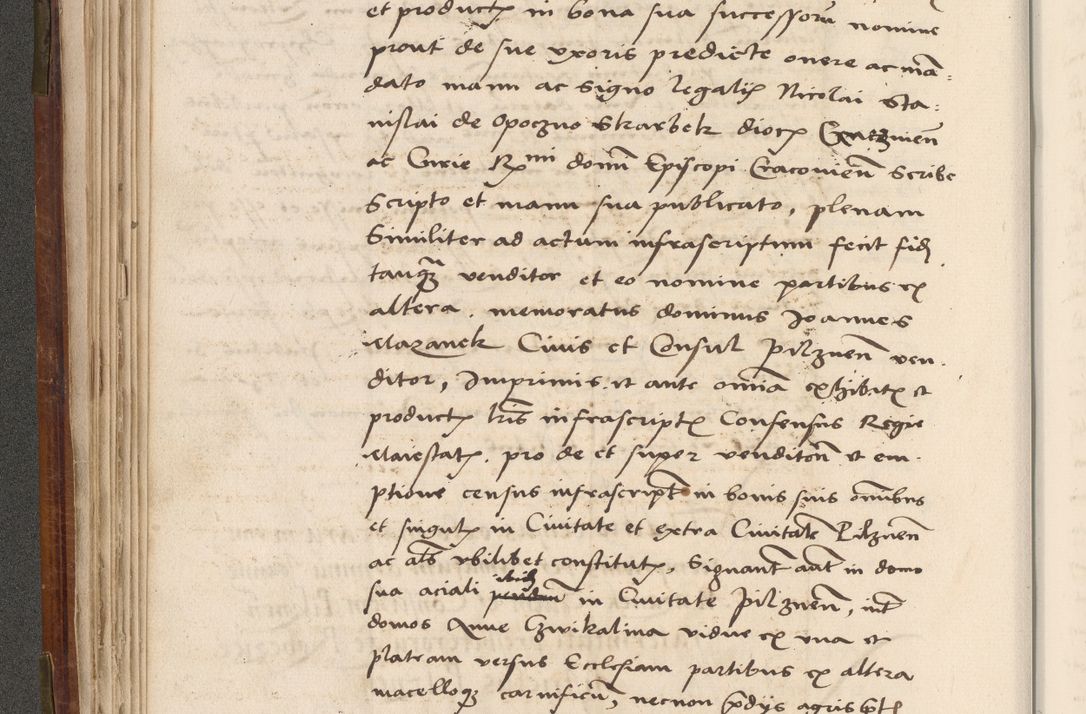 et product in bona sua successorum nomine
prout de sue uxoris predicte onere ac man-
dato manu ac signo legalis Nicolai Sta-
nislai de Opoczno Skarbek dioc Gneznen
ac Curie Rmi domi Episcopi Cracovien Scribe
Scripto et manu sua publicato, plenam
Similiter ad actum infrascriptum fecit fid
tanqz venditor et eo nomine partibus ex
altera. memoratus dominus Joannes
Mazanek Civis et Consul Pilznen ven-
ditor, Imprimis et ante omnia exhibitis et
productis lris infrascriptis Consensus Regie
Maiestatis. pro de et super venditon et em-
ptione census infrascript in bonis suis omnibus
et singulis in Civitate et extra Civitate Pilznen
ac alis ubilibet constitutis, Signant aut in domo
sua aciali ibid in Civitate Pilznen, int
domos Anne Czwikalina vidue ex una et
plateam versus Ecclesiam partibus ex altera
macelloqz carnificum, necnon pdys agris prat